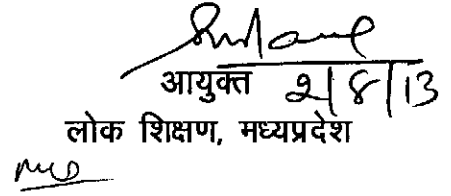 आयुक्त 2/8/13
लोक शिक्षण, मध्यप्रदेश